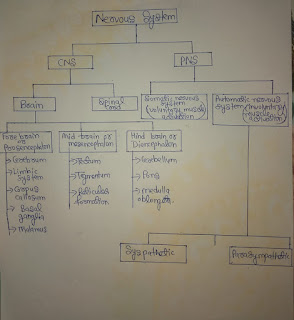 Nervous System
CNS
PNS
Brain
Spinal
Cord
Somatic nervous
system
(voluntary muscle)
activation
Automatic nervous
system (involuntary
muscles
activation)
Fore brain
or
Mid brain or
mesencephalon
Hind brain or
Diencephalon
Cerebrum
Limbic
System
Corpus
callosum
Basal
ganglia
Tectum
Tegmentum
formation
Cerebellum
Pons
medulla
oblongata
Sympathetic
Parasympathetic